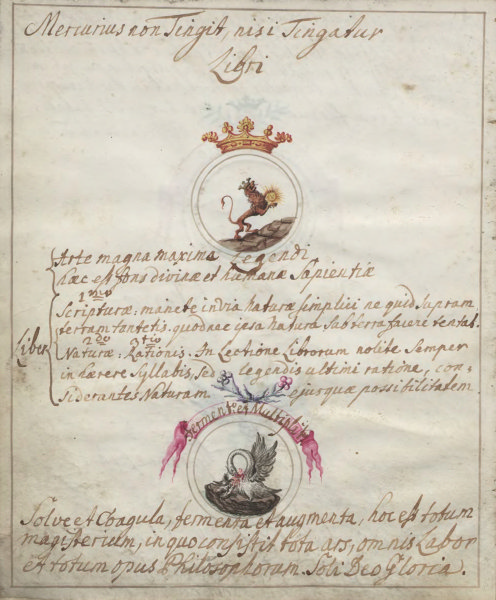 Mercurius non Tingit, nisi Tingatur
Libri
Arte magna maxima Legendi
hæc est fons divinæ et humanæ Sapientiæ
1mo
Scripturæ: manete in via naturæ simplici ne quid supram
terram tentetis quod nec ipsa natura sub terra facere tentat.
2do 3tio
Liber Naturæ: Rationis. In Lectione Librorum nolite Semper
inhærere Syllabis, sed legendis ultimi ratione, con=
siderantes Naturam ejusquæ possibilitatem
Ferment: et Multiplic:
Solve et Coagula, fermenta et augmenta, hoc est totum
magisterium, in quo consistit tota ars, omnis Labor
et totum opus Philosophorum. Soli Deo Gloria.